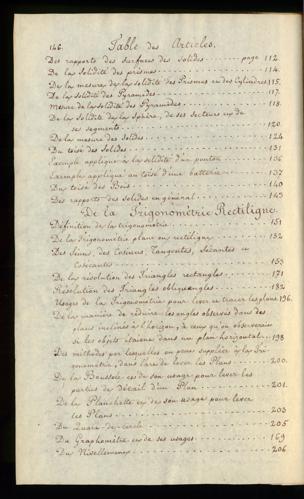 146. Table des Articles.
Des rapports des surfaces des solides - - - - page 112
De la Solidité des prismes - - - - 114.
De la mesure de la solidité des Prismes et des Cylindres 115.
De la Solidité des Pyramides - - - - 117.
Mesure de la solidité des Pyramides - - - - 118.
De la Solidité de la Sphère, de ses secteurs et de
ses segments - - - - 120
De la mesure des solides - - - - 124
Du toisé des Solides - - - - 131
Exemple appliqué à la solidité d'un ponton - - - - 136
Exemple appliqué au toisé d'une batterie - - - - 137
Du toisé des Bois - - - - 140
Des rapports des solides en général - - - - 143
De la Trigonométrie Rectiligne
Définition de la trigonométrie - - - - 151
De la Trigonométrie plane ou rectiligne - - - - 152
Des Sinus, des Cosinus, Tangentes, Sécantes et
Cosécantes - - - - 153
De la résolution des Triangles rectangles - - - - 171
Résolution des Triangles obliquangles - - - - 182
Usages de la Trigonométrie pour lever et tracer les plans 196.
De la manière de réduire les angles observés dans des
plans inclinés à l'horizon, à ceux qu'on observerait
si les objets étaient dans un plan horizontal - - 198
Des méthodes par lesquelles on peut suppléer à la Tri-
gonométrie, dans l'art de lever les Plans - - - - 200.
De la Boussole et de son usage pour lever les
parties de détail d'un Plan - - - - 201.
De la Planchette et de son usage pour lever
les Plans - - - - 203
Du Quart-de-cercle - - - - 205
Du Graphomètre et de ses usages - - - - 169
Du Nivellement - - - - 206